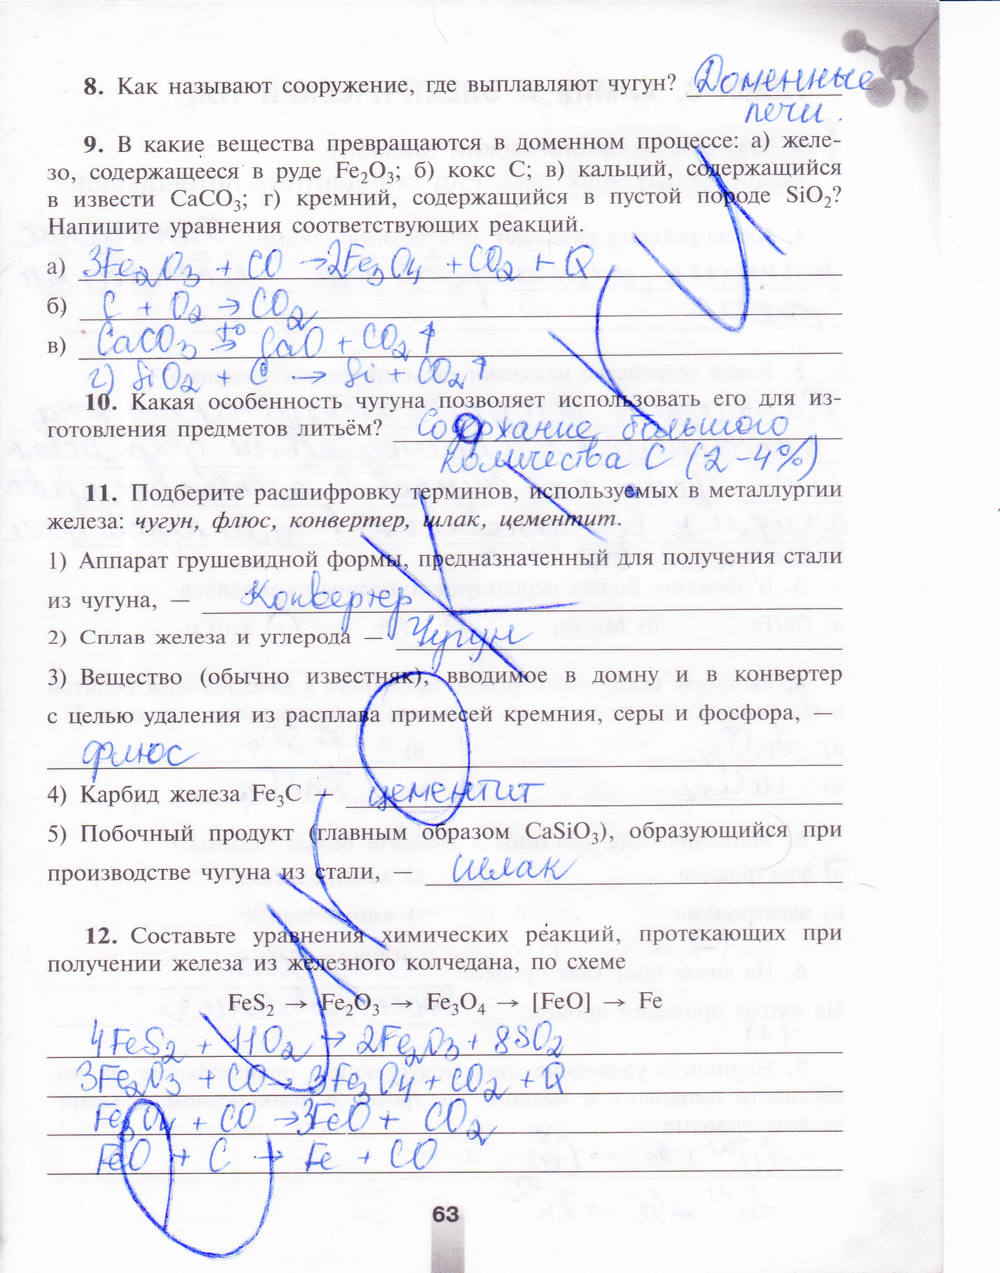 8. Как называют сооружение, где выплавляют чугун? Доменные
печи.
9. В какие вещества превращаются в доменном процессе: а) желе-
зо, содержащееся в руде Fe₂O₃; б) кокс C; в) кальций, содержащийся
в извести CaCO₃; г) кремний, содержащийся в пустой породе SiO₂?
Напишите уравнения соответствующих реакций.
а) 3Fe₂O₃ + CO → 2Fe₃O₄ + CO₂ + Q
б) C + O₂ → CO₂
в) CaCO₃ t° → CaO + CO₂↑
г) SiO₂ + C → Si + CO₂↑
10. Какая особенность чугуна позволяет использовать его для из-
готовления предметов литьём? Содержание большого
количества C (2-4%)
11. Подберите расшифровку терминов, используемых в металлургии
железа: чугун, флюс, конвертер, шлак, цементит.
1) Аппарат грушевидной формы, предназначенный для получения стали
из чугуна, — Конвертер
2) Сплав железа и углерода — Чугун
3) Вещество (обычно известняк), вводимое в домну и в конвертер
с целью удаления из расплава примесей кремния, серы и фосфора, —
флюс
4) Карбид железа Fe₃C — цементит
5) Побочный продукт (главным образом CaSiO₃), образующийся при
производстве чугуна из стали, — шлак
12. Составьте уравнения химических реакций, протекающих при
получении железа из железного колчедана, по схеме
FeS₂ → Fe₂O₃ → Fe₃O₄ → [FeO] → Fe
4FeS₂ + 11O₂ → 2Fe₂O₃ + 8SO₂
3Fe₂O₃ + CO → 3Fe₃O₄ + CO₂ + Q
Fe₃O₄ + CO → 3FeO + CO₂
FeO + C → Fe + CO
63